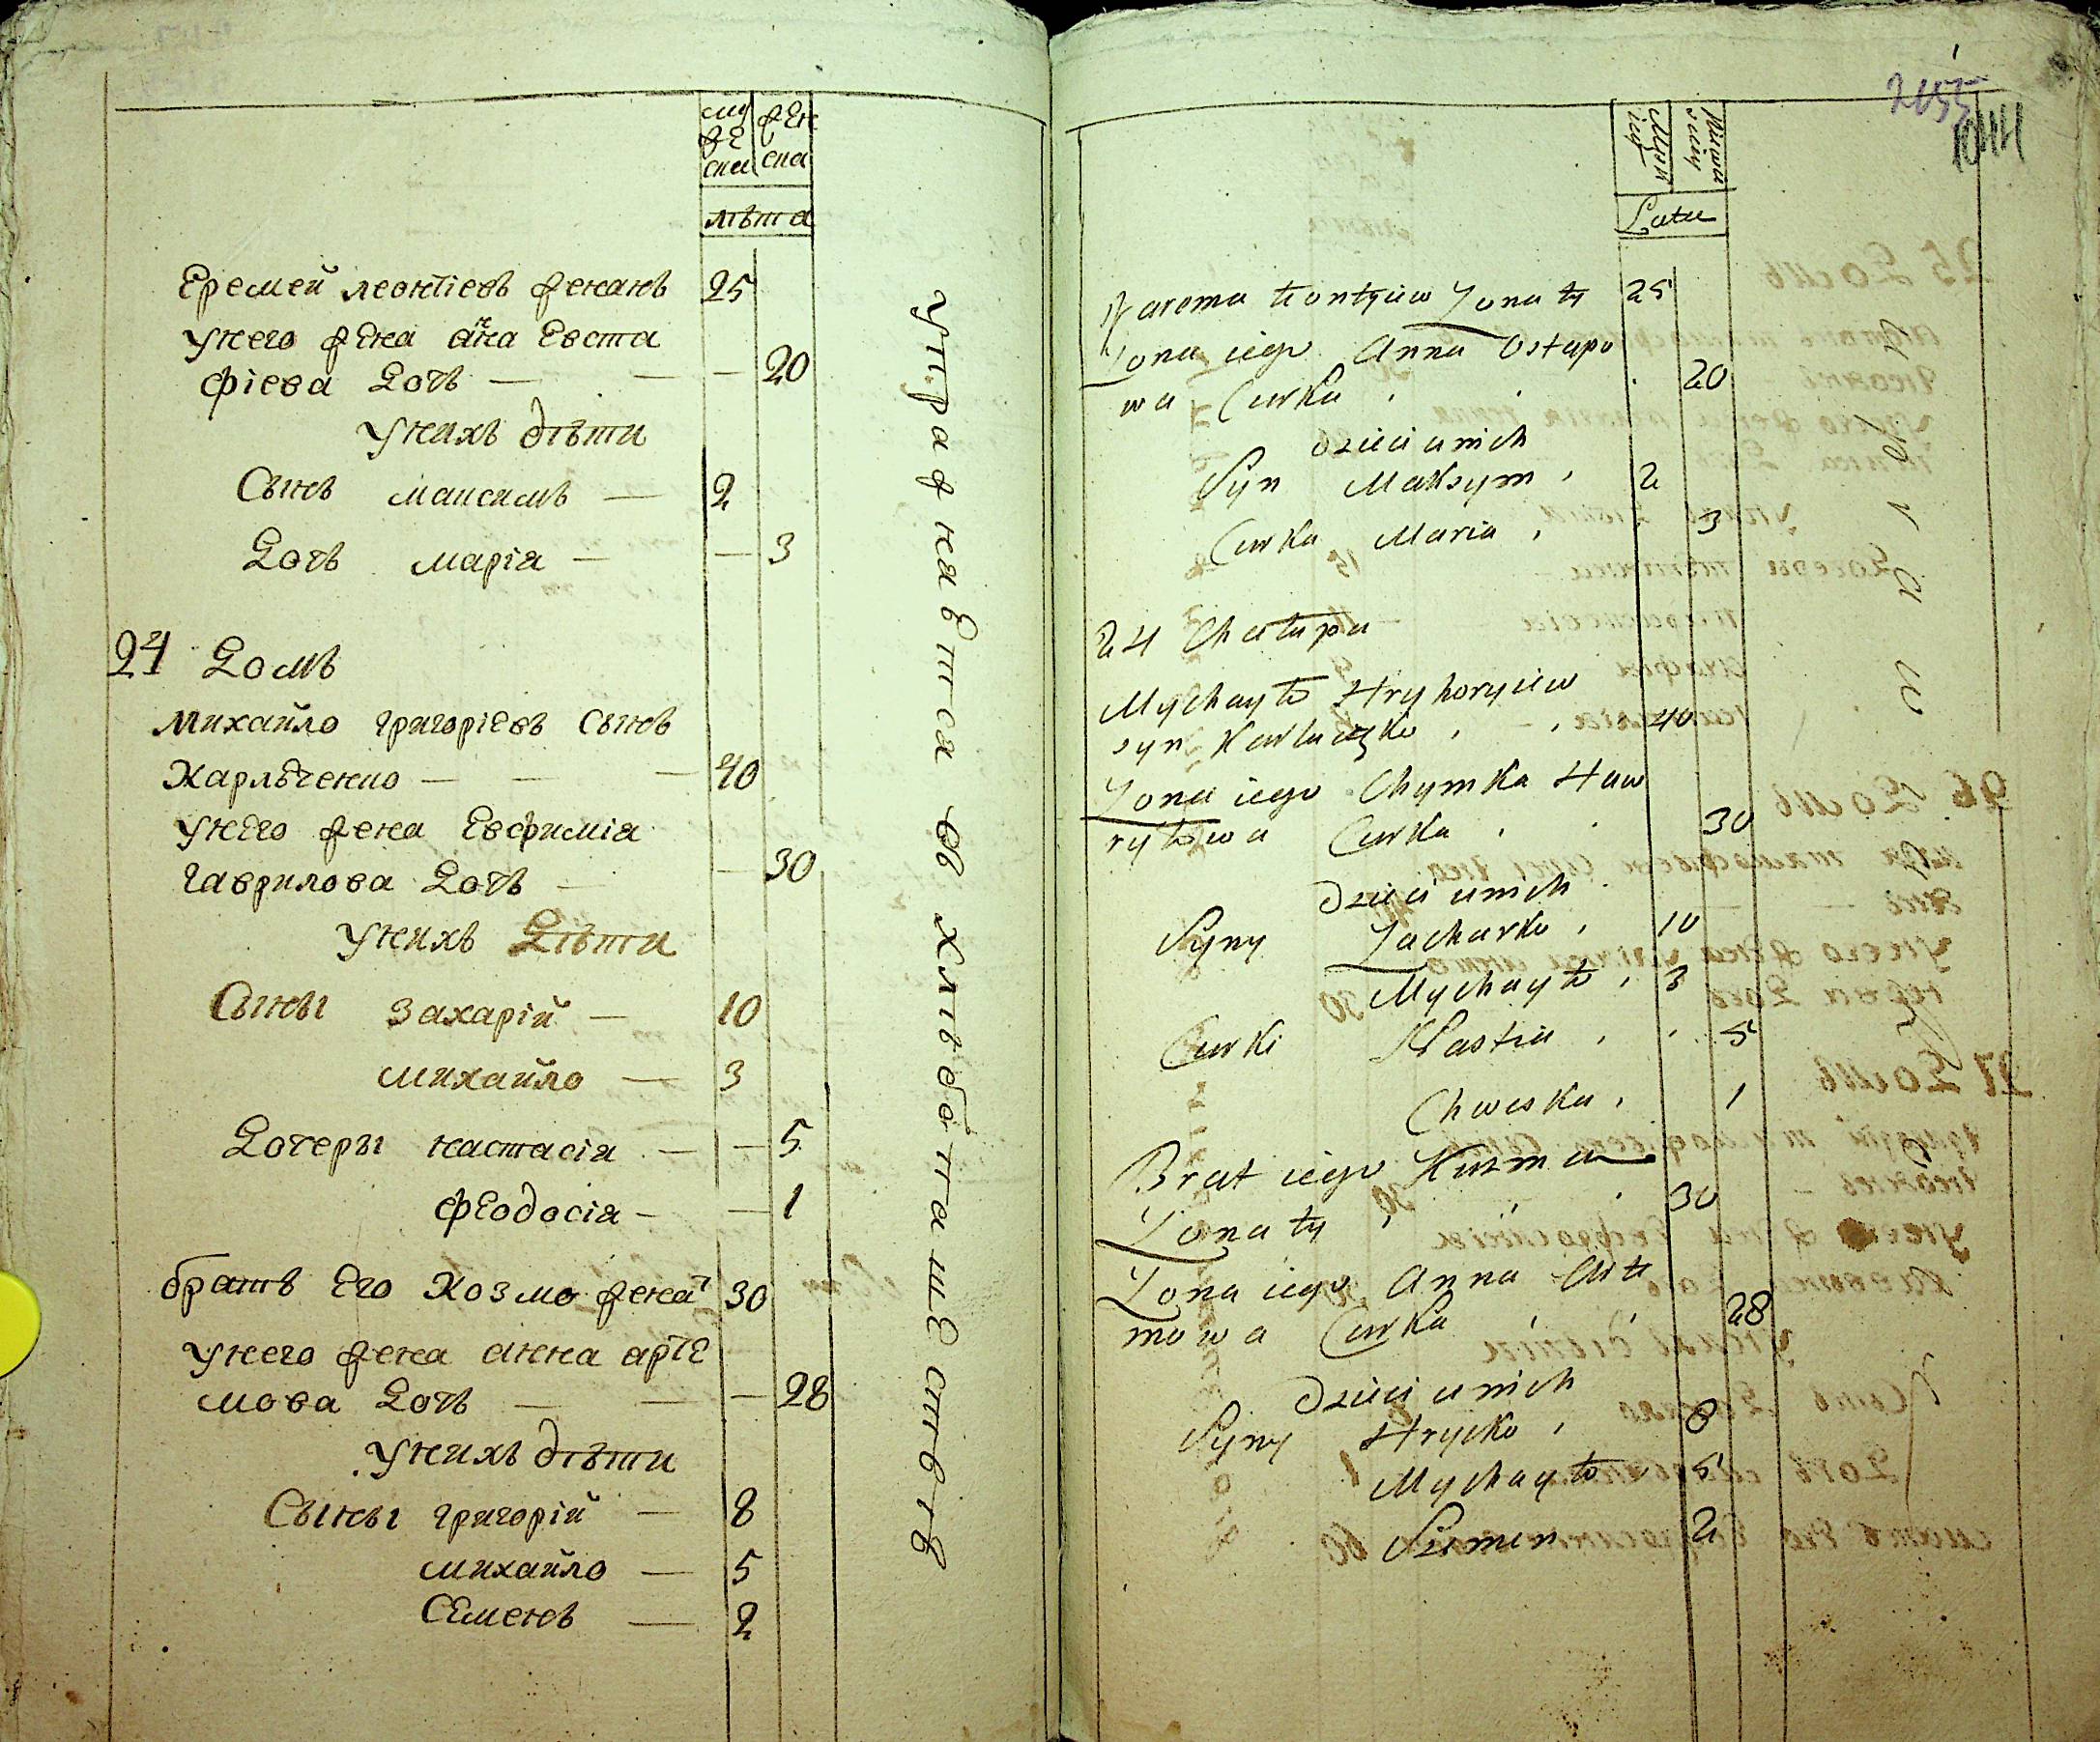 му
же
ска
жен
ска
лѣта
Еремей леонтіевъ женатъ 25
У него жена анна Евста
фіева Дочь — — — 20
У нихъ дѣти
Сынъ максимъ — 2
Дочь марія — — 3
24 Домъ
Михайло григоріевъ Сынъ
Харлѣченко — — — 40
У него жена Евфимія
Гаврилова Дочь — — 30
У нихъ Дѣти
Сыны захарій — 10
михайло — 3
Дочеры настасія — — 5
феодосія — — 1
братъ Его Козмо женат 30
У него жена анна арте
мова Дочь — — — 28
У нихъ дѣти
Сыны григорій — 8
михайло — 5
Семенъ — 2
упражнявтса въ хлѣбопашествѣ
2155
1044
Lata
Jarema Leontyiew Żonaty 25
Żona iego Anna Ostapo
wa Curka 20
Dzieci u nich
Syn Maksym 2
Curka Maria 3
24 Chałupa
Mychayło Hryhoryiew
syn 40
Żona iego Chymka Haw
ryłowa Curka 30
Dzieci u nich
Syny Zacharko 10
Mychayło 3
Curki Nastia 5
Chweska 1
Brat iego Kuzma
Żonaty 30
Żona iego Anna Arte
mowa Curka 28
Dzieci u nich
Syny Hryćko 8
Mychayło 5
Siemien 2